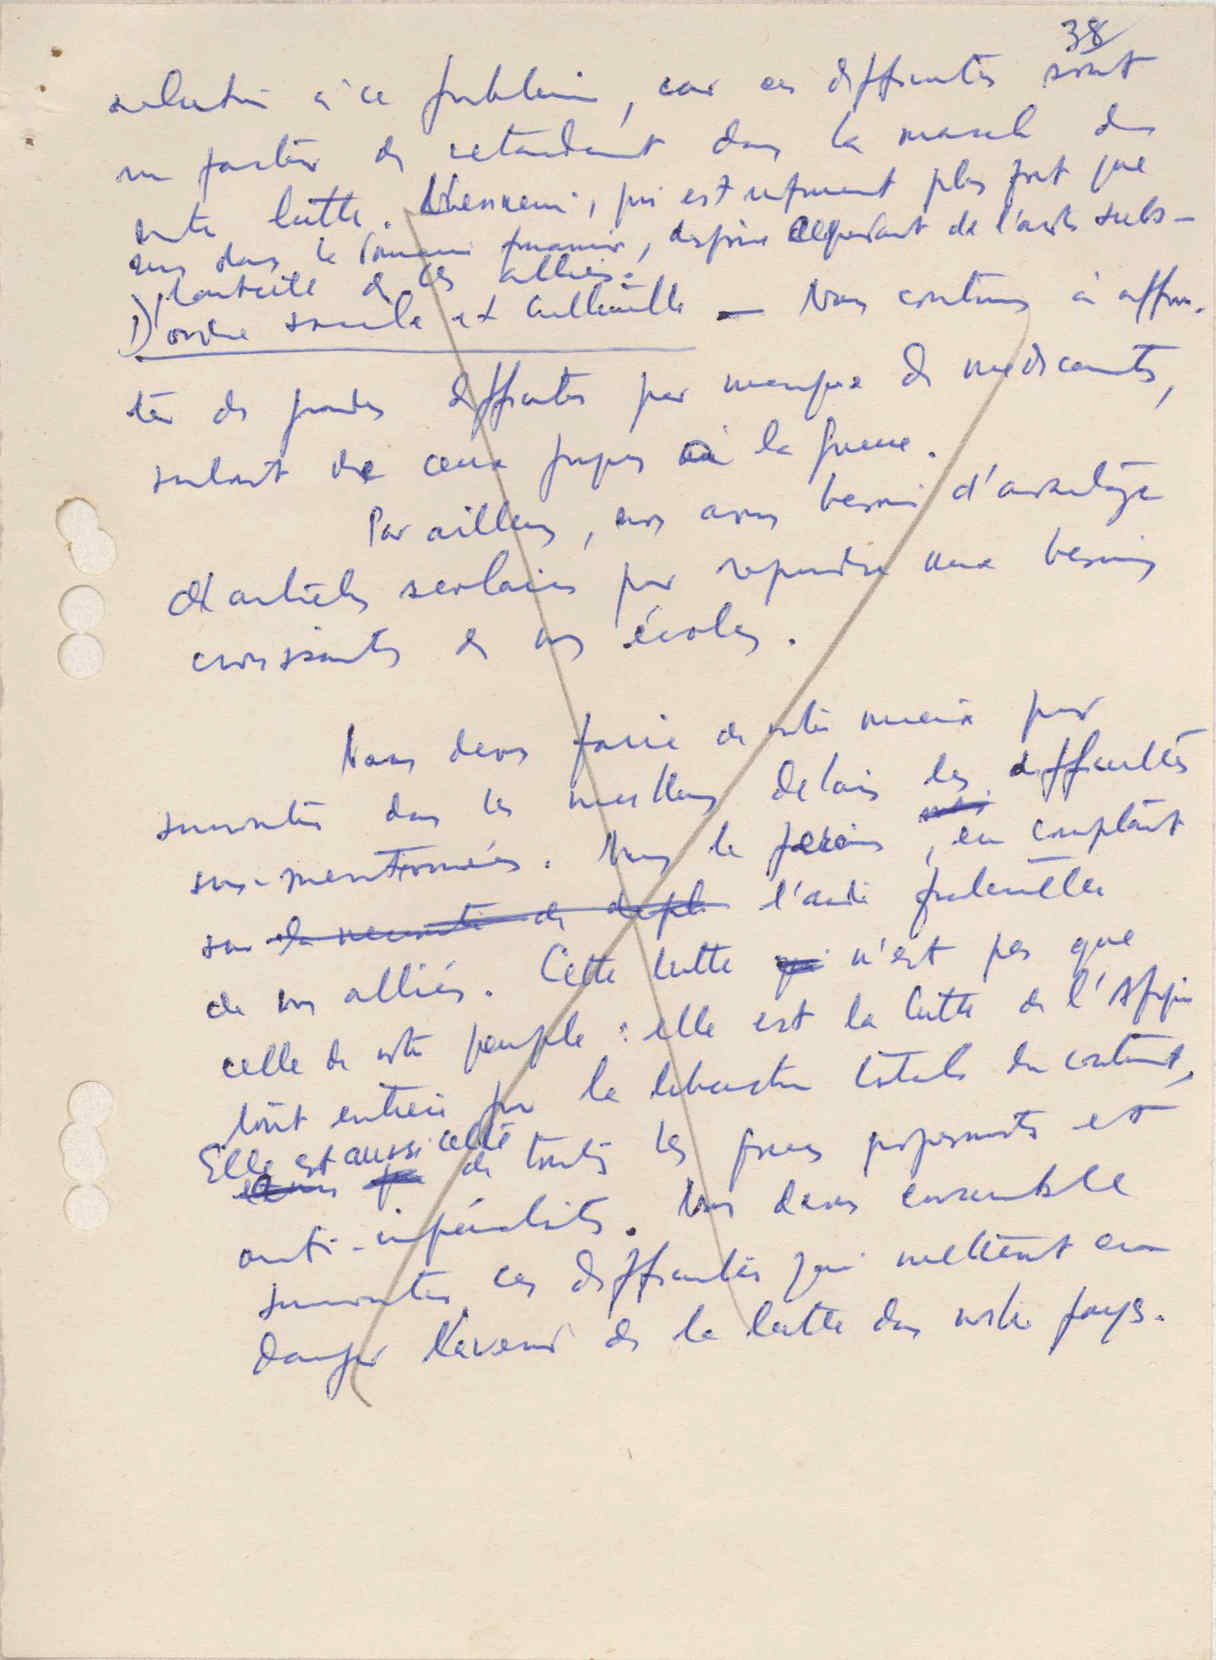 38
solution à ce problème, car ces difficultés sont
un facteur de retardement dans la marche de
notre lutte. L'ennemi, qui est infiniment plus fort que
nous dans le domaine financier, dispose cependant de l'aide subs-
tantielle de ses alliés.
D'ordre sociale et culturelle — Nous continuons à affron-
ter de grandes difficultés par manque de médicaments,
surtout de ceux propres à la guerre.
Par ailleurs, nous avons besoin d'avantage
d'articles scolaires pour répondre aux besoins
croissants de nos écoles.
Nous devons faire de notre mieux pour
surmonter dans les meilleurs délais les difficultés
sus-mentionnées. Nous le ferons, en comptant
sur l'aide fraternelle
de nos alliés. Cette lutte n'est pas que
celle de notre peuple : elle est la lutte de l'Afrique
tout entière pour la libération totale du continent.
Elle est aussi celle de toutes les forces progressistes et
anti-impérialistes. Nous devons ensemble
surmonter ces difficultés qui mettent en
danger l'avenir de la lutte dans notre pays.